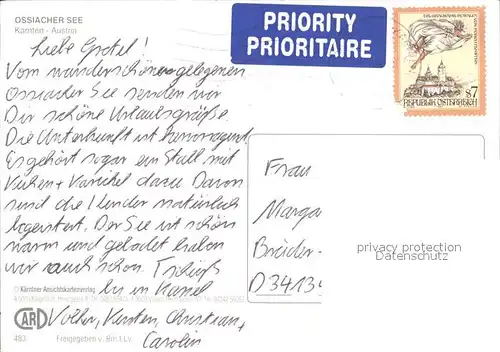 OSSIACHER SEE
Kärnten - Austria
PRIORITY
PRIORITAIRE
S7
REPUBLIK ÖSTERREICH
Liebe Gretel!
Vom wunderschönen gelegenen
Ossiacher See senden wir
Dir schöne Urlaubsgrüße.
Die Unterkunft ist hervorragend.
Es gehört sogar ein Stall mit
Kühen + Kaninchen dazu. Davon
sind die Kinder natürlich
begeistert. Der See ist schön
warm und gebadet haben
wir auch schon. Tschüß
bis in Kassel
Volker, Kersten, Christian +
Carolin
Frau
Marga
Brüder-
D 3413
privacy protection
Datenschutz
© Kärntner Ansichtskartenverlag
CARD
483
Freigegeben v. Bm.f.Lv.